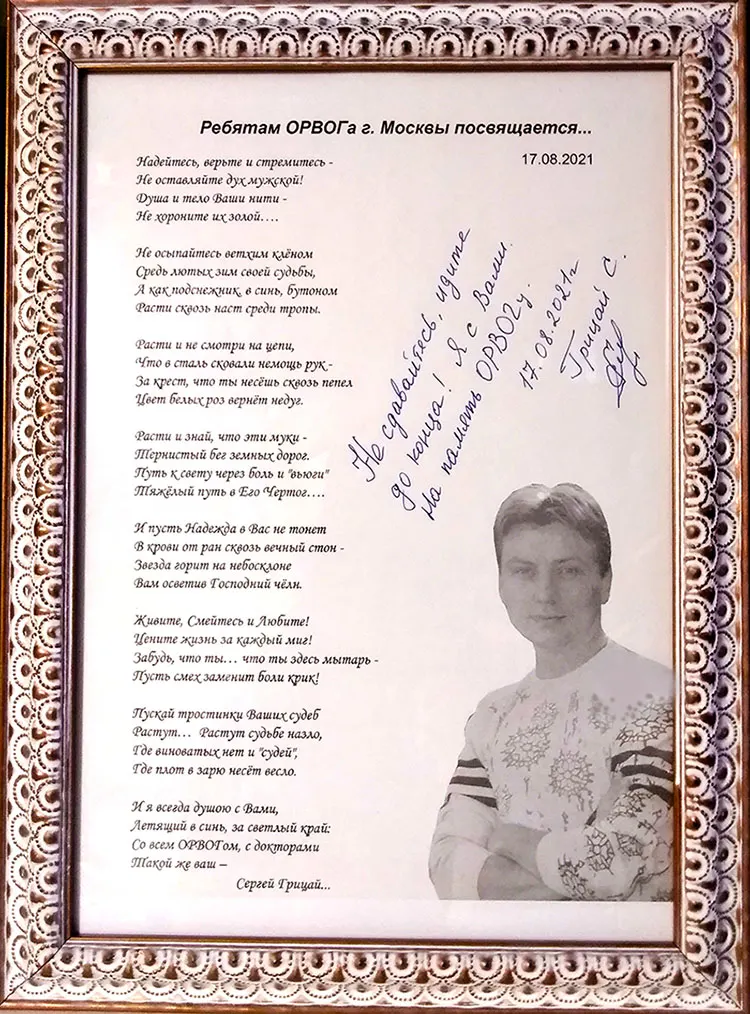 Ребятам ОРВОГа г. Москвы посвящается...
17.08.2021
Надейтесь, верьте и стремитесь -
Не оставляйте дух мужской!
Душа и тело Ваши нити -
Не хороните их золой....
Не осыпайтесь ветхим клёном
Средь лютых зим своей судьбы,
А как подснежник, в синь, бутоном
Расти сквозь наст среди тропы.
Расти и не смотри на цепи,
Что в сталь сковали немощь рук -
За крест, что ты несёшь сквозь пепел
Цвет белых роз вернёт недуг.
Расти и знай, что эти муки -
Тернистый бег земных дорог.
Путь к свету через боль и "вьюги"
Тяжёлый путь в Его Чертог....
И пусть Надежда в Вас не тонет
В крови от ран сквозь вечный стон -
Звезда горит на небосклоне
Вам осветив Господний чёлн.
Живите, Смейтесь и Любите!
Цените жизнь за каждый миг!
Забудь, что ты... что ты здесь мытарь -
Пусть смех заменит боли крик!
Пускай тростинки Ваших судеб
Растут... Растут судьбе назло,
Где виноватых нет и "судей",
Где плот в зарю несёт весло.
И я всегда душою с Вами,
Летящий в синь, за светлый край:
Со всем ОРВОГом, с докторами
Такой же ваш –
Сергей Грицай...
Не сдавайтесь, идите
до конца! Я с Вами.
На память ОРВОГу.
17.08.2021г
Грицай С.